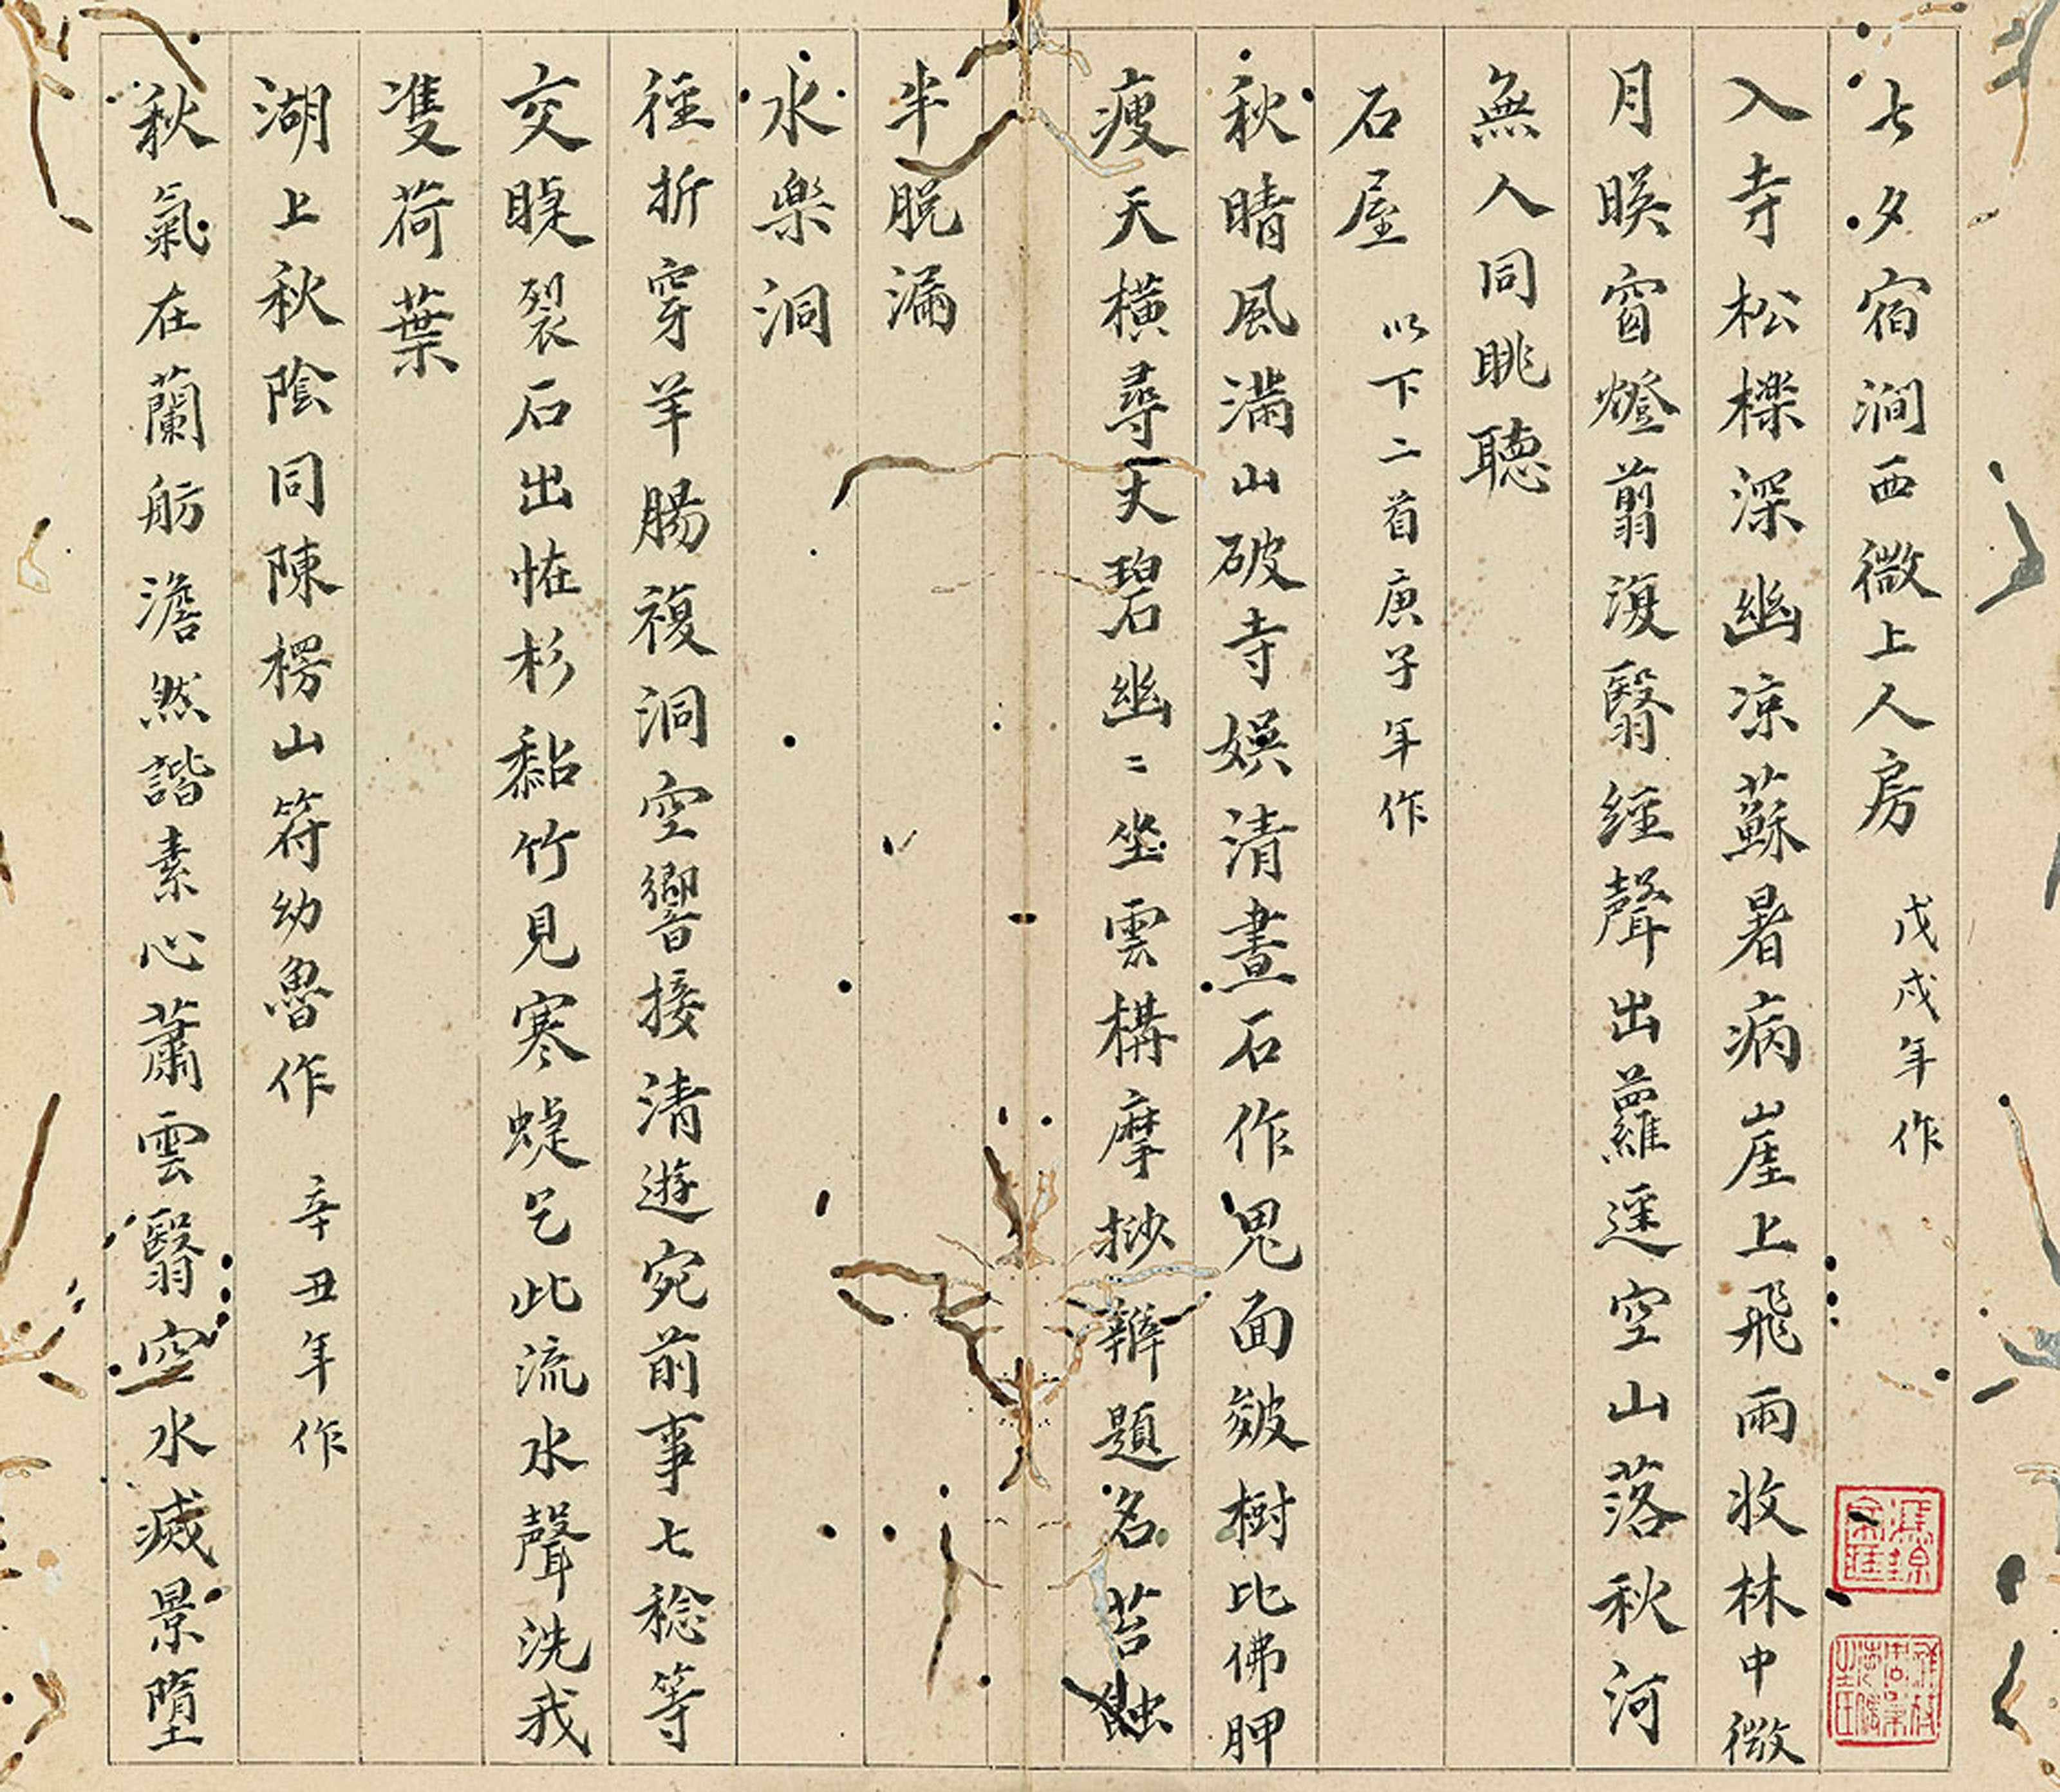 七夕宿澗西微上人房 戊戌年作
入寺松櫟深幽涼蘇暑病崖上飛雨收林中微
月暎窗燈翦復翳經聲出蘿逕空山落秋河
無人同眺聽
石屋 以下二首庚子年作
秋晴風滿山破寺娛清晝石作鬼面皴樹比佛胛
瘦天橫尋丈碧幽〻坐雲構摩挱辨題名苔蝕
半脫漏
水樂洞
徑折穿羊腸複洞空響接清遊宛前事七稔等
交睫裂石出恠杉黏竹見寒蜨乞此流水聲洗我
隻荷葉
湖上秋陰同陳楞山符幼魯作 辛丑年作
秋氣在蘭舫澹然諧素心蕭雲翳空水滅景墮